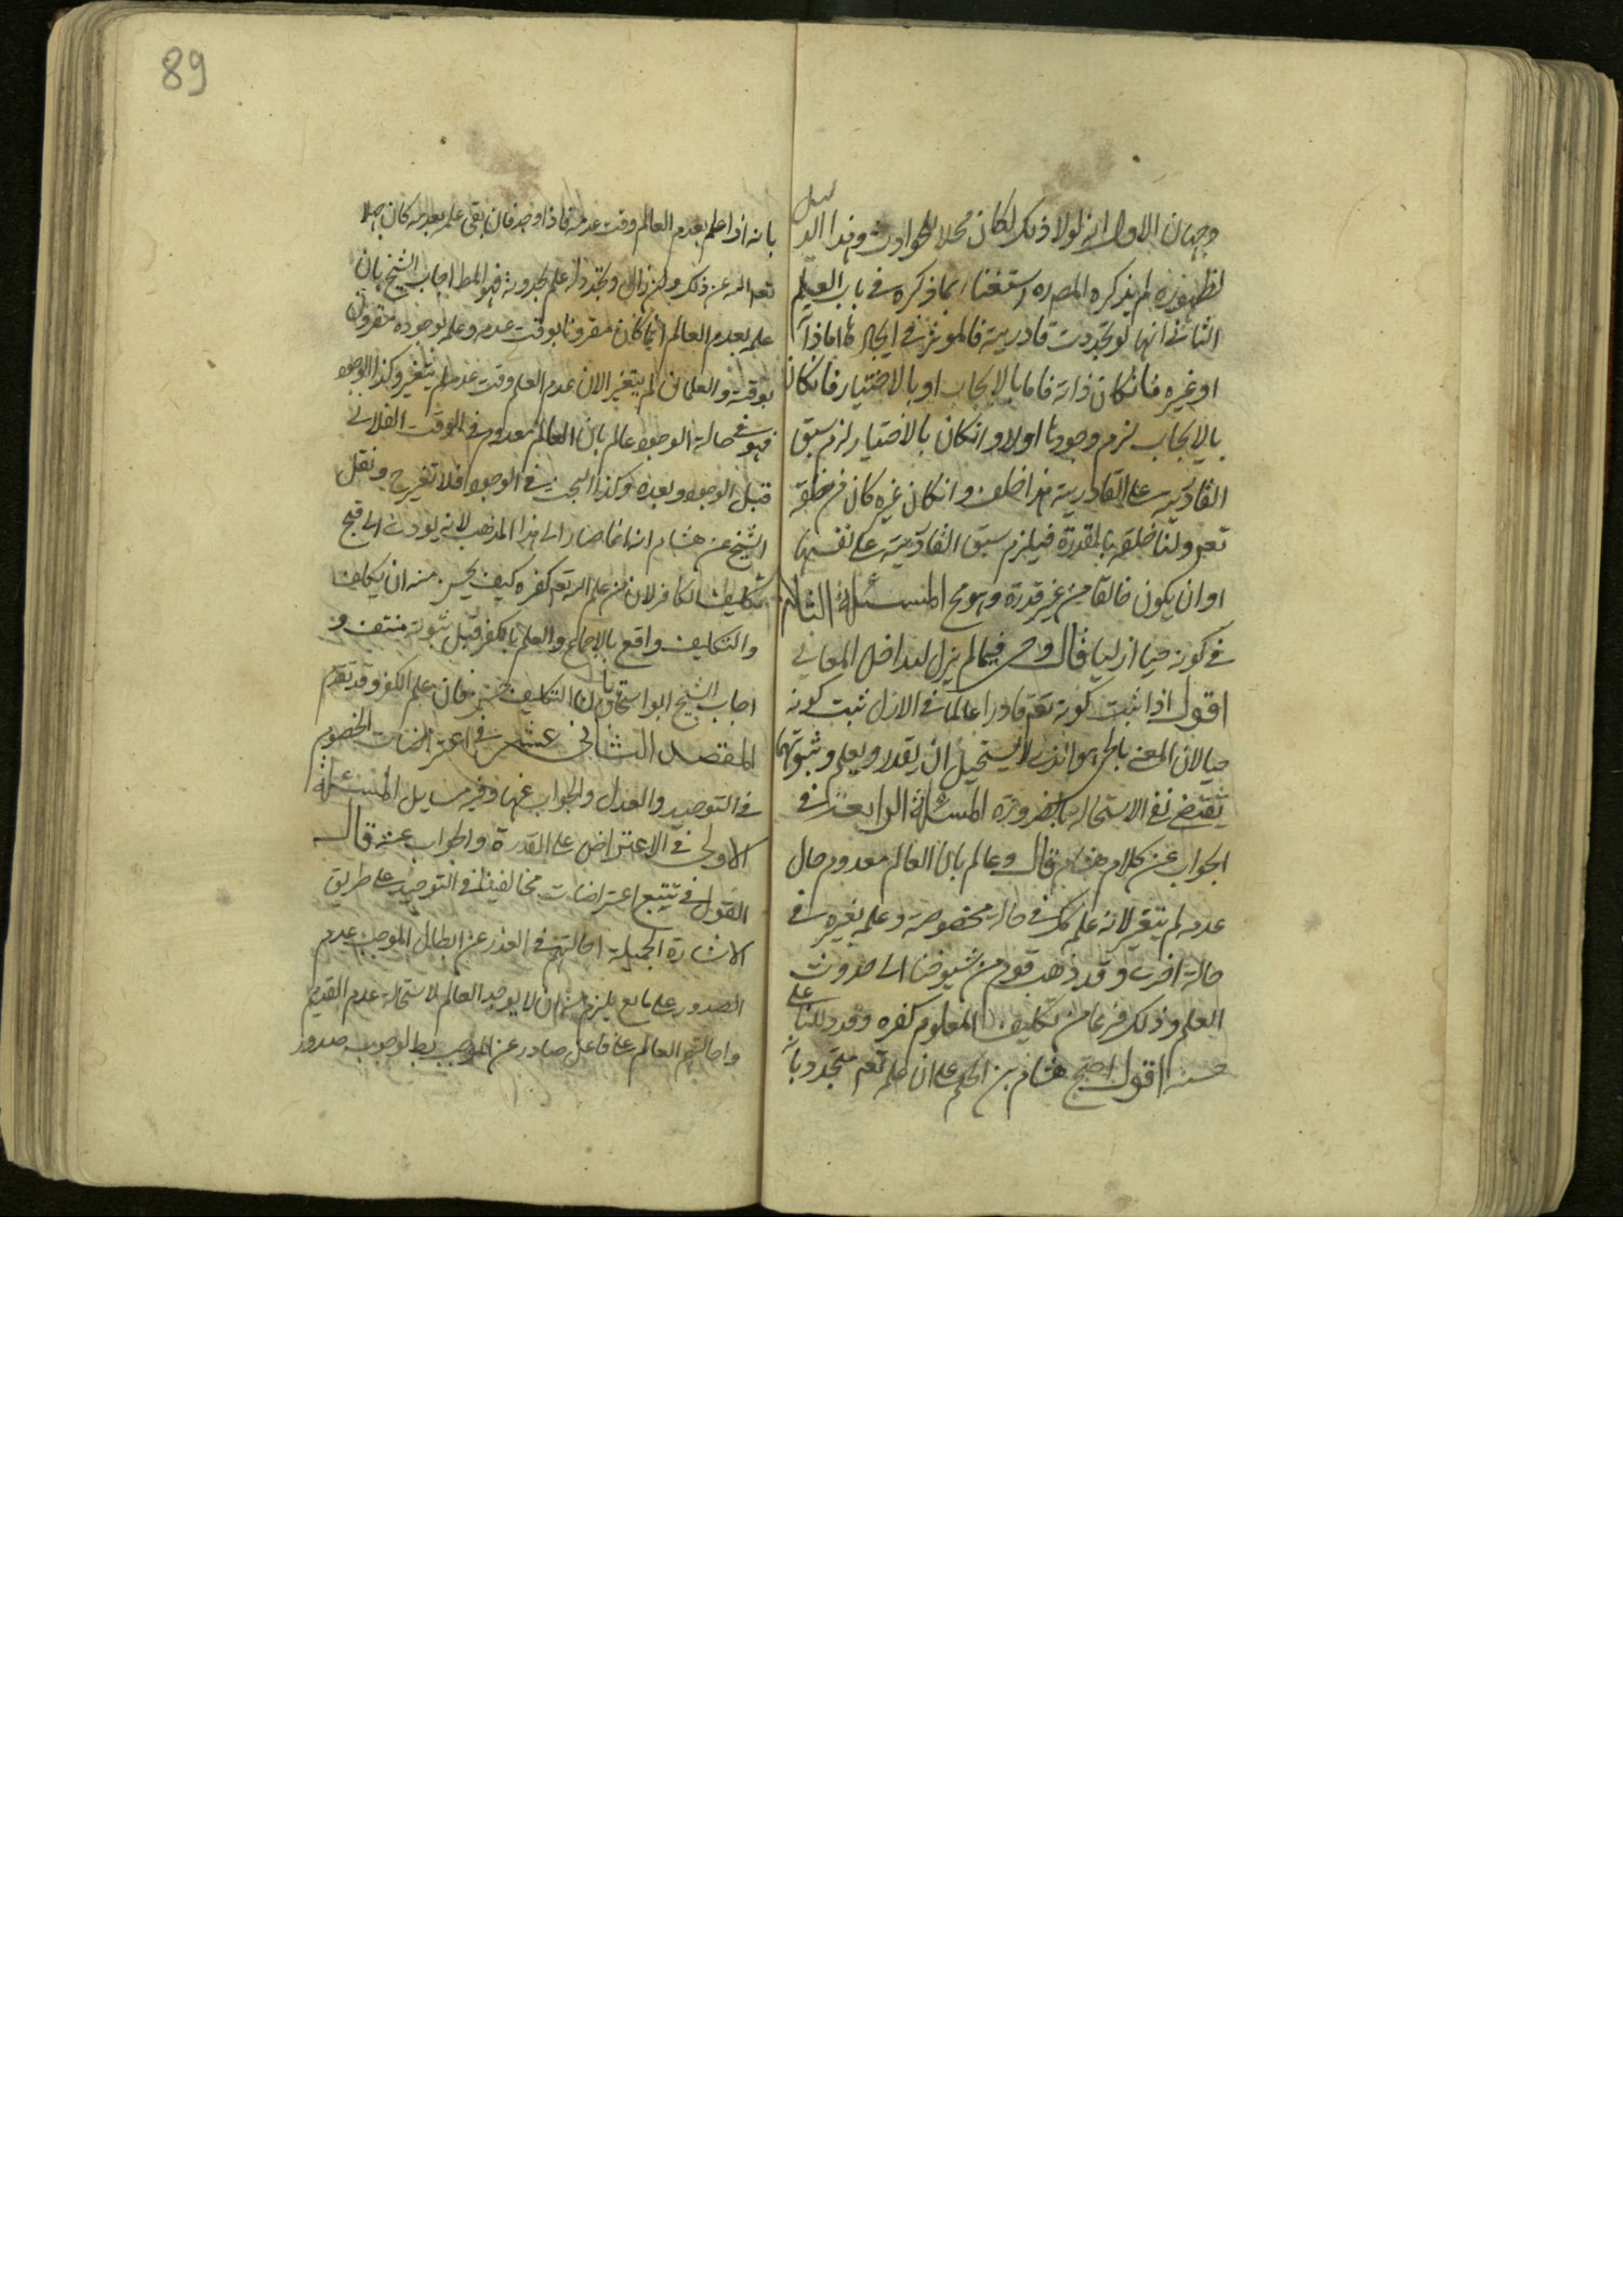 وجهان الاول انه لولا ذلك لكان محلا للحوادث وهذا الدليل
لظهوره لم يذكره المصره استغناء بما ذكره في باب العلم
الثاني انها لو تجددت قادريته فالموثر في ايجادها اما ذاته
او غيره فانكان ذاته فاما بالايجاب او بالاختيار فانكان
بالايجاب لزم وجودها اولا وانكان بالاختيار لزم سبق
القادرية على القادرية هذا خلف وانكان غيره كان من خلقه
تعم ولنا خلقه بالقدرة فيلزم سبق القادرية على نفسها
او ان يكون خالقا من غير قدرة وهو مح المسئلة الثالثة
في كونه حيا ازليا قال وحي فيما لم يزل لتداخل المعاني
اقول اذا ثبت كونه تعم قادرا عالما في الازل ثبت كونه
حيا لان المعني بالحي هو الذي لا يستحيل ان يقدر ويعلم وثبوتهما
يقتضي نفي الاستحالة بالضرورة المسئلة الرابعة في
الجواب عن كلام هشام قال وعالم بان العالم معدوم حال
عدمه لم يتغير لانه علم ذلك في حالة مخصوصة وعلمه بغيره في
حالة اخرى وقد ذهب قوم من شيوخنا الى حدوث
العلم وذلك فرعا من تكليف المعلوم كفره وقد دللنا على
حسنه اقول احتج هشام بن الحكم على ان علمه تعم متجدد بانه
89
بانه اذا علم بعدم العالم وقت عدمه فاذا وجد فان بقى علمه بعدمه كان جهلا
تعم الله عن ذلك وان زال وتجدد له علم بحدوثه فهو المط اجاب الشيخ بان
علمه بعدم العالم انما كان مقرونا بوقت عدمه وعلمه بوجوده مقرون
بوقته والعلمان لم يتغير الان عدم العلم وقت عدمه لم يتغير وكذا الوجود
فهو في حالة الوجود عالم بان العالم معدوم في الوقت الفلاني
قبل الوجود وبعده وكذا البحث في الوجود فلا تغير ح ونقل
الشيخ عن هشام انه انما صار الى هذا المذهب لانه يودي الى قبح
تكليف الكافر لان من علم الله تعم كفره كيف يحسن منه ان يكلفه
والتكليف واقع بالاجماع والعلم بالكفر قبل ثبوته منتف و
اجاب الشيخ ابو اسحاق بان التكليف حسن فان علم الكفر وقد تقدم
المقصد الثاني عشر في اعتراضات الخصوم
في التوحيد والعدل والجواب عنها وفيه مسايل المسئلة
الاولى في الاعتراض على القدرة والجواب عنه قال
القول في تتبع اعتراضات مخالفينا في التوحيد على طريق
الاشارة الجميلة احالتهم في العذر عن ابطال الموجب عدم
الصدور على مانع يلزم منه ان لا يوجد العالم لاستحالة عدم القديم
واحالتهم العالم على فاعل صادر عن الموجب بط لوجوب صدور